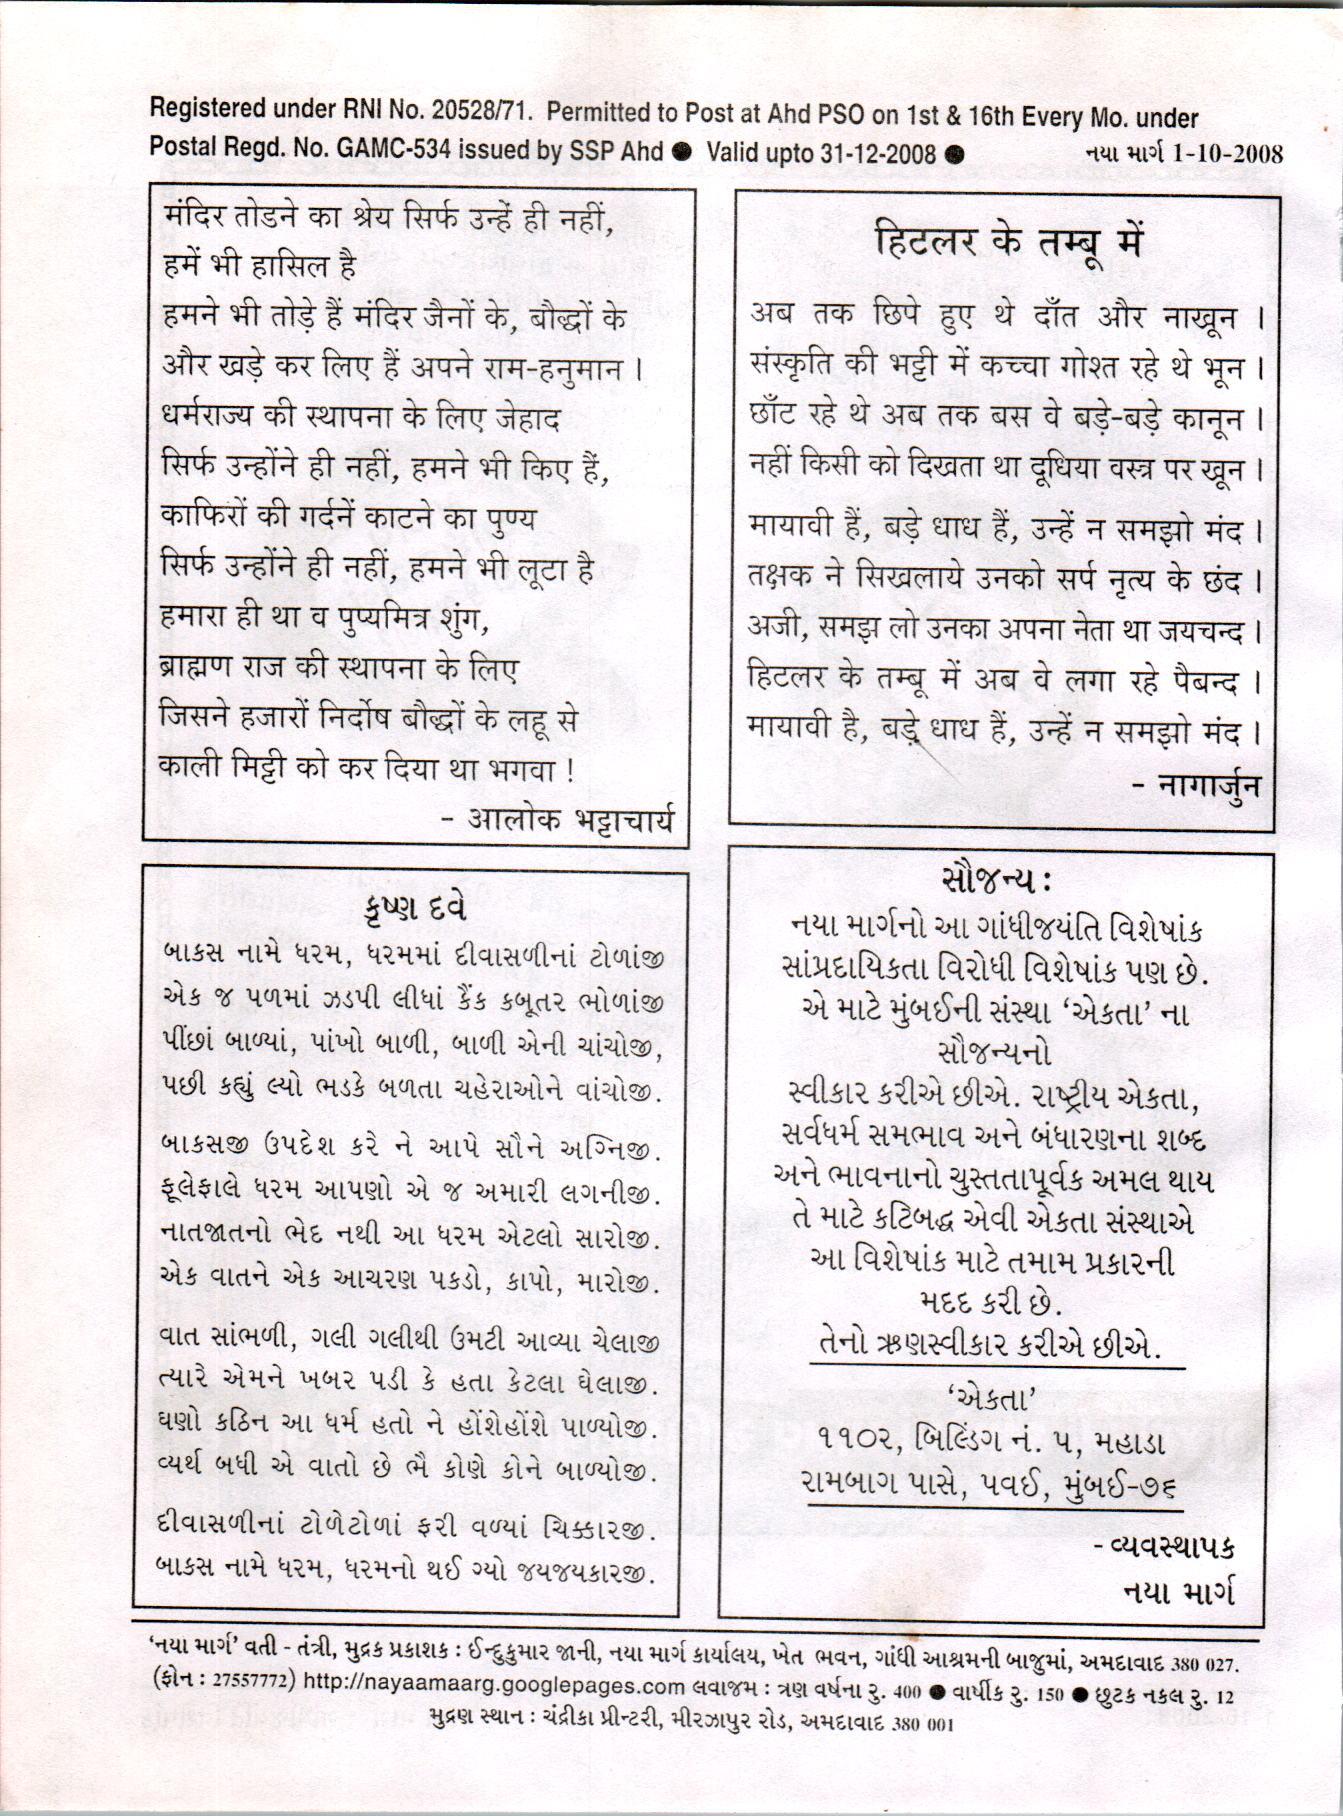 Registered under RNI No. 20528/71. Permitted to Post at Ahd PSO on 1st & 16th Every Mo. under
Postal Regd. No. GAMC-534 issued by SSP Ahd ● Valid upto 31-12-2008 ● નયા માર્ગ 1-10-2008
मंदिर तोडने का श्रेय सिर्फ उन्हें ही नहीं,
हमें भी हासिल है
हमने भी तोड़े हैं मंदिर जैनों के, बौद्धों के
और खड़े कर लिए हैं अपने राम-हनुमान ।
धर्मराज्य की स्थापना के लिए जेहाद
सिर्फ उन्होंने ही नहीं, हमने भी किए हैं,
काफिरों की गर्दनें काटने का पुण्य
सिर्फ उन्होंने ही नहीं, हमने भी लूटा है
हमारा ही था व पुप्यमित्र शुंग,
ब्राह्मण राज की स्थापना के लिए
जिसने हजारों निर्दोष बौद्धों के लहू से
काली मिट्टी को कर दिया था भगवा !
- आलोक भट्टाचार्य
हिटलर के तम्बू में
अब तक छिपे हुए थे दाँत और नाखून ।
संस्कृति की भट्टी में कच्चा गोश्त रहे थे भून ।
छाँट रहे थे अब तक बस वे बड़े-बड़े कानून ।
नहीं किसी को दिखता था दूधिया वस्त्र पर खून ।
मायावी हैं, बड़े धाध हैं, उन्हें न समझो मंद ।
तक्षक ने सिखलाये उनको सर्प नृत्य के छंद ।
अजी, समझ लो उनका अपना नेता था जयचन्द ।
हिटलर के तम्बू में अब वे लगा रहे पैबन्द ।
मायावी है, बड़े धाध हैं, उन्हें न समझो मंद ।
- नागार्जुन
કૃષ્ણ દવે
બાકસ નામે ધરમ, ધરમમાં દીવાસળીનાં ટોળાંજી
એક જ પળમાં ઝડપી લીધાં કૈંક કબૂતર ભોળાંજી
પીંછાં બાળ્યાં, પાંખો બાળી, બાળી એની ચાંચોજી,
પછી કહ્યું લ્યો ભડકે બળતા ચહેરાઓને વાંચોજી.
બાકસજી ઉપદેશ કરે ને આપે સૌને અગ્નિજી.
ફૂલેફાલે ધરમ આપણો એ જ અમારી લગનીજી.
નાતજાતનો ભેદ નથી આ ધરમ એટલો સારોજી.
એક વાતને એક આચરણ પકડો, કાપો, મારોજી.
વાત સાંભળી, ગલી ગલીથી ઉમટી આવ્યા ચેલાજી
ત્યારે એમને ખબર પડી કે હતા કેટલા ઘેલાજી.
ઘણો કઠિન આ ધર્મ હતો ને હોંશેહોંશે પાળ્યોજી.
વ્યર્થ બધી એ વાતો છે ભૈ કોણે કોને બાળ્યોજી.
દીવાસળીનાં ટોળેટોળાં ફરી વળ્યાં ચિક્કારજી.
બાકસ નામે ધરમ, ધરમનો થઈ ગ્યો જયજયકારજી.
સૌજન્ય :
નયા માર્ગનો આ ગાંધીજયંતિ વિશેષાંક
સાંપ્રદાયિકતા વિરોધી વિશેષાંક પણ છે.
એ માટે મુંબઈની સંસ્થા ‘એકતા’ ના
સૌજન્યનો
સ્વીકાર કરીએ છીએ. રાષ્ટ્રીય એકતા,
સર્વધર્મ સમભાવ અને બંધારણના શબ્દ
અને ભાવનાનો ચુસ્તતાપૂર્વક અમલ થાય
તે માટે કટિબદ્ધ એવી એકતા સંસ્થાએ
આ વિશેષાંક માટે તમામ પ્રકારની
મદદ કરી છે.
તેનો ઋણસ્વીકાર કરીએ છીએ.
‘એકતા’
૧૧૦૨, બિલ્ડિંગ નં. ૫, મહાડા
રામબાગ પાસે, પવઈ, મુંબઈ-૭૬
- વ્યવસ્થાપક
નયા માર્ગ
‘નયા માર્ગ’ વતી - તંત્રી, મુદ્રક પ્રકાશક : ઈન્દુકુમાર જાની, નયા માર્ગ કાર્યાલય, ખેત ભવન, ગાંધી આશ્રમની બાજુમાં, અમદાવાદ 380 027.
(ફોન : 27557772) http://nayaamaarg.googlepages.com લવાજમ : ત્રણ વર્ષના રુ. 400 ● વાર્ષીક રુ. 150 ● છુટક નકલ રુ. 12
મુદ્રણ સ્થાન : ચંદ્રીકા પ્રીન્ટરી, મીરઝાપુર રોડ, અમદાવાદ 380 001